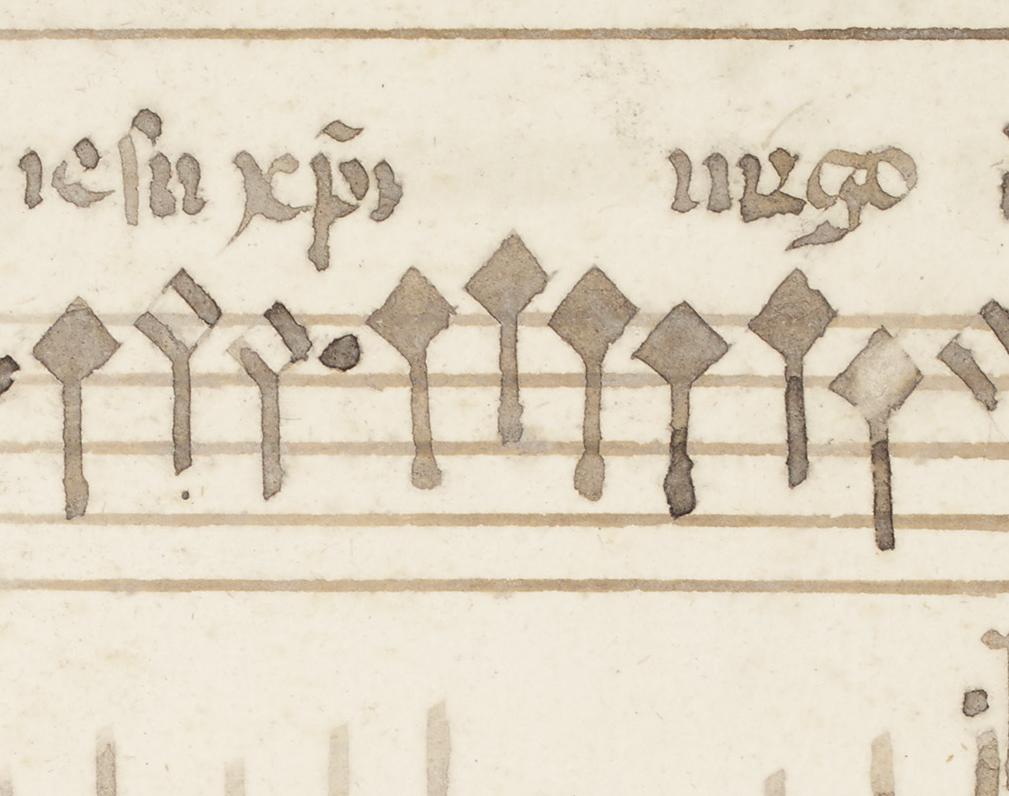 iesu xp̄i uirgo